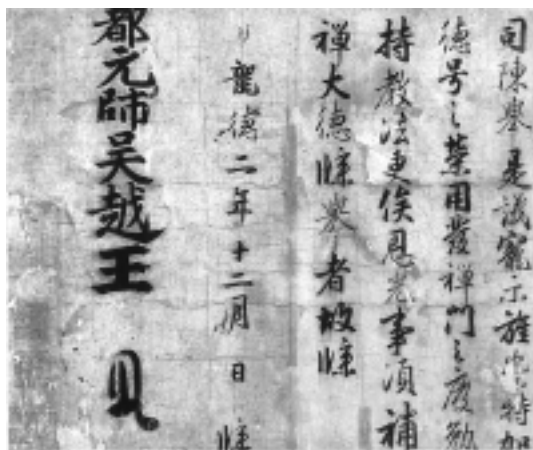 司陳舉是議寵示旌特加
德号之榮用發禪門之慶勉
持教法更俟恩光事須補
禪大德牒舉者故牒
龍德二年十二月日牒
都元帥吳越王